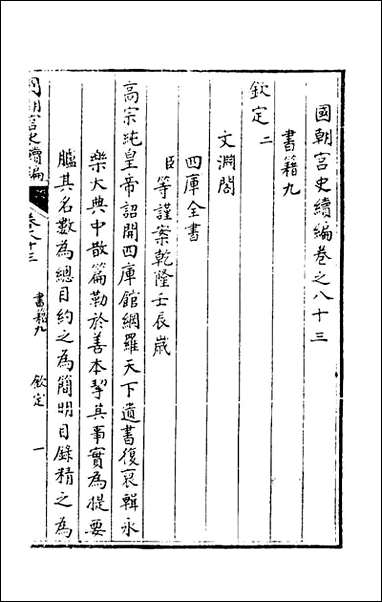 國朝宮史續編卷之八十三
書籍九
欽定二
文淵閣
四庫全書
臣等謹案乾隆壬辰歲
高宗純皇帝詔開四庫館網羅天下遺書復裒輯永
樂大典中散篇勒於善本挈其事實為提要
臚其名數為總目約之為簡明目錄精之為
國朝宮史續編 卷八十三 書籍九 欽定 一